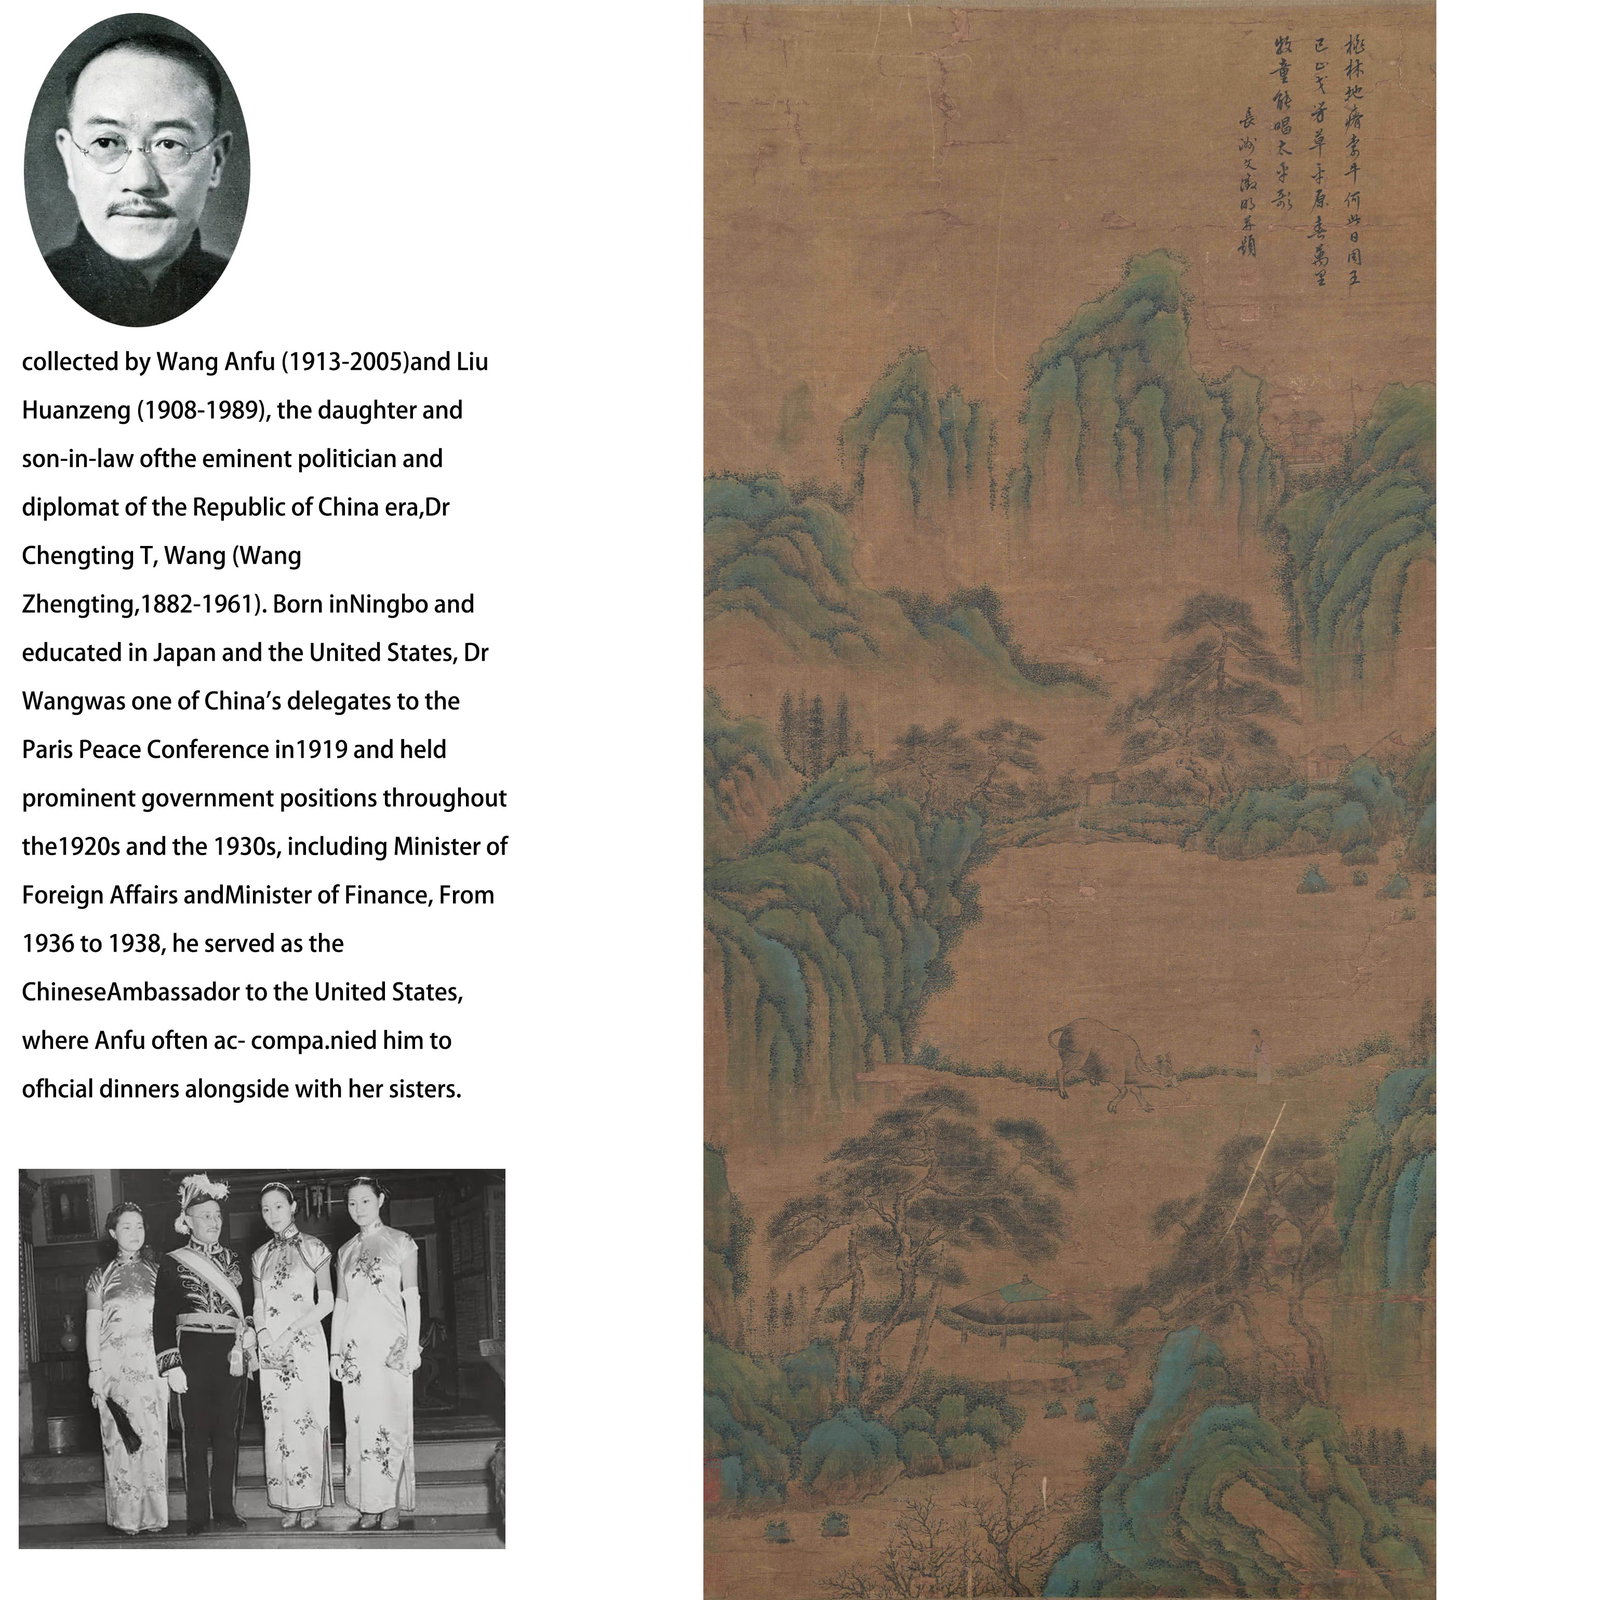 collected by Wang Anfu (1913-2005)and Liu
Huanzeng (1908-1989), the daughter and
son-in-law ofthe eminent politician and
diplomat of the Republic of China era,Dr
Chengting T, Wang (Wang
Zhengting,1882-1961). Born inNingbo and
educated in Japan and the United States, Dr
Wangwas one of China’s delegates to the
Paris Peace Conference in1919 and held
prominent government positions throughout
the1920s and the 1930s, including Minister of
Foreign Affairs andMinister of Finance, From
1936 to 1938, he served as the
ChineseAmbassador to the United States,
where Anfu often ac- compa.nied him to
ofhcial dinners alongside with her sisters.
桃林地瘠索牛何此日周王
已止戈芳草平原春萬里
牧童能唱太平歌
長洲文徵明并題